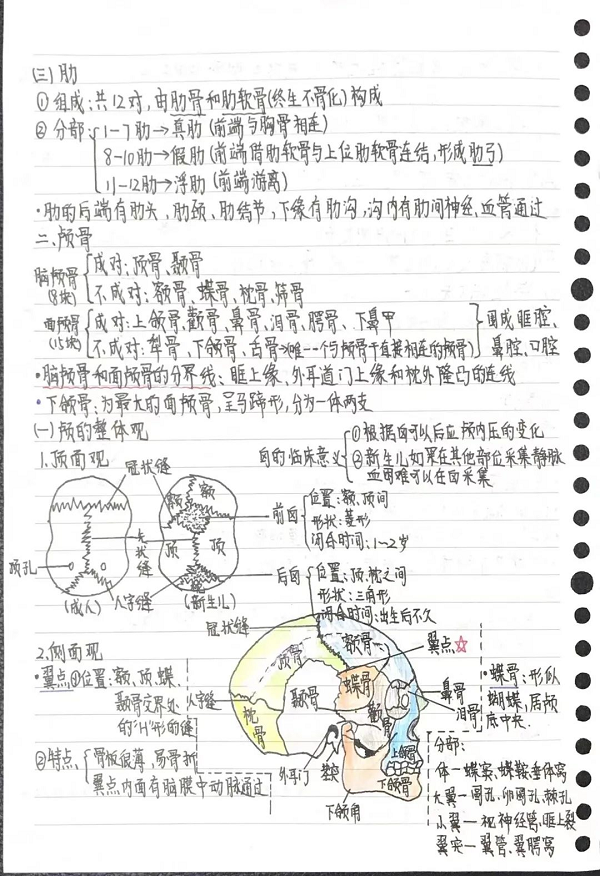 (三)肋
①组成:共12对,由肋骨和肋软骨(终生不骨化)构成
②分部:1-7肋→真肋(前端与胸骨相连)
8-10肋→假肋(前端借肋软骨与上位肋软骨连结,形成肋弓)
11-12肋→浮肋(前端游离)
·肋的后端有肋头、肋颈、肋结节,下缘有肋沟,沟内有肋间神经、血管通过
二、颅骨
脑颅骨(8块)
成对:顶骨、颞骨
不成对:额骨、蝶骨、枕骨、筛骨
面颅骨(15块)
成对:上颌骨、颧骨、鼻骨、泪骨、腭骨、下鼻甲
不成对:犁骨、下颌骨、舌骨→(唯一一个与颅骨直接相连的颅骨)
围成眶腔、
鼻腔、口腔
·脑颅骨和面颅骨的分界线:眶上缘、外耳道门上缘和枕外隆凸的连线
·下颌骨:为最大的面颅骨,呈马蹄形,分为一体两支
(一)颅的整体观
1.顶面观
囟的临床意义
①根据囟可以后应颅内压的变化
②新生儿如果在其他部位采集静脉
血困难可以在囟采集
冠状缝
矢状缝
人字缝
顶孔
(成人)
额
额
顶
顶
(新生儿)
前囟
位置:额、顶间
形状:菱形
闭合时间:1~2岁
后囟
位置:顶、枕之间
形状:三角形
闭合时间:出生后不久
2.侧面观
·翼点①位置:额、顶、蝶、
颞骨交界处
的"H"形的缝
②特点
骨板很薄,易骨折
翼点内面有脑膜中动脉通过
冠状缝
人字缝
顶骨
额骨
翼点☆
颞骨
蝶骨
枕骨
颧骨
鼻骨
泪骨
上颌骨
下颌骨
外耳门
茎突
下颌角
·蝶骨:形似
蝴蝶,居颅
底中央
分部:
体—蝶窦、蝶鞍、垂体窝
大翼—圆孔、卵圆孔、棘孔
小翼—视神经管、眶上裂
翼突—翼管、翼腭窝